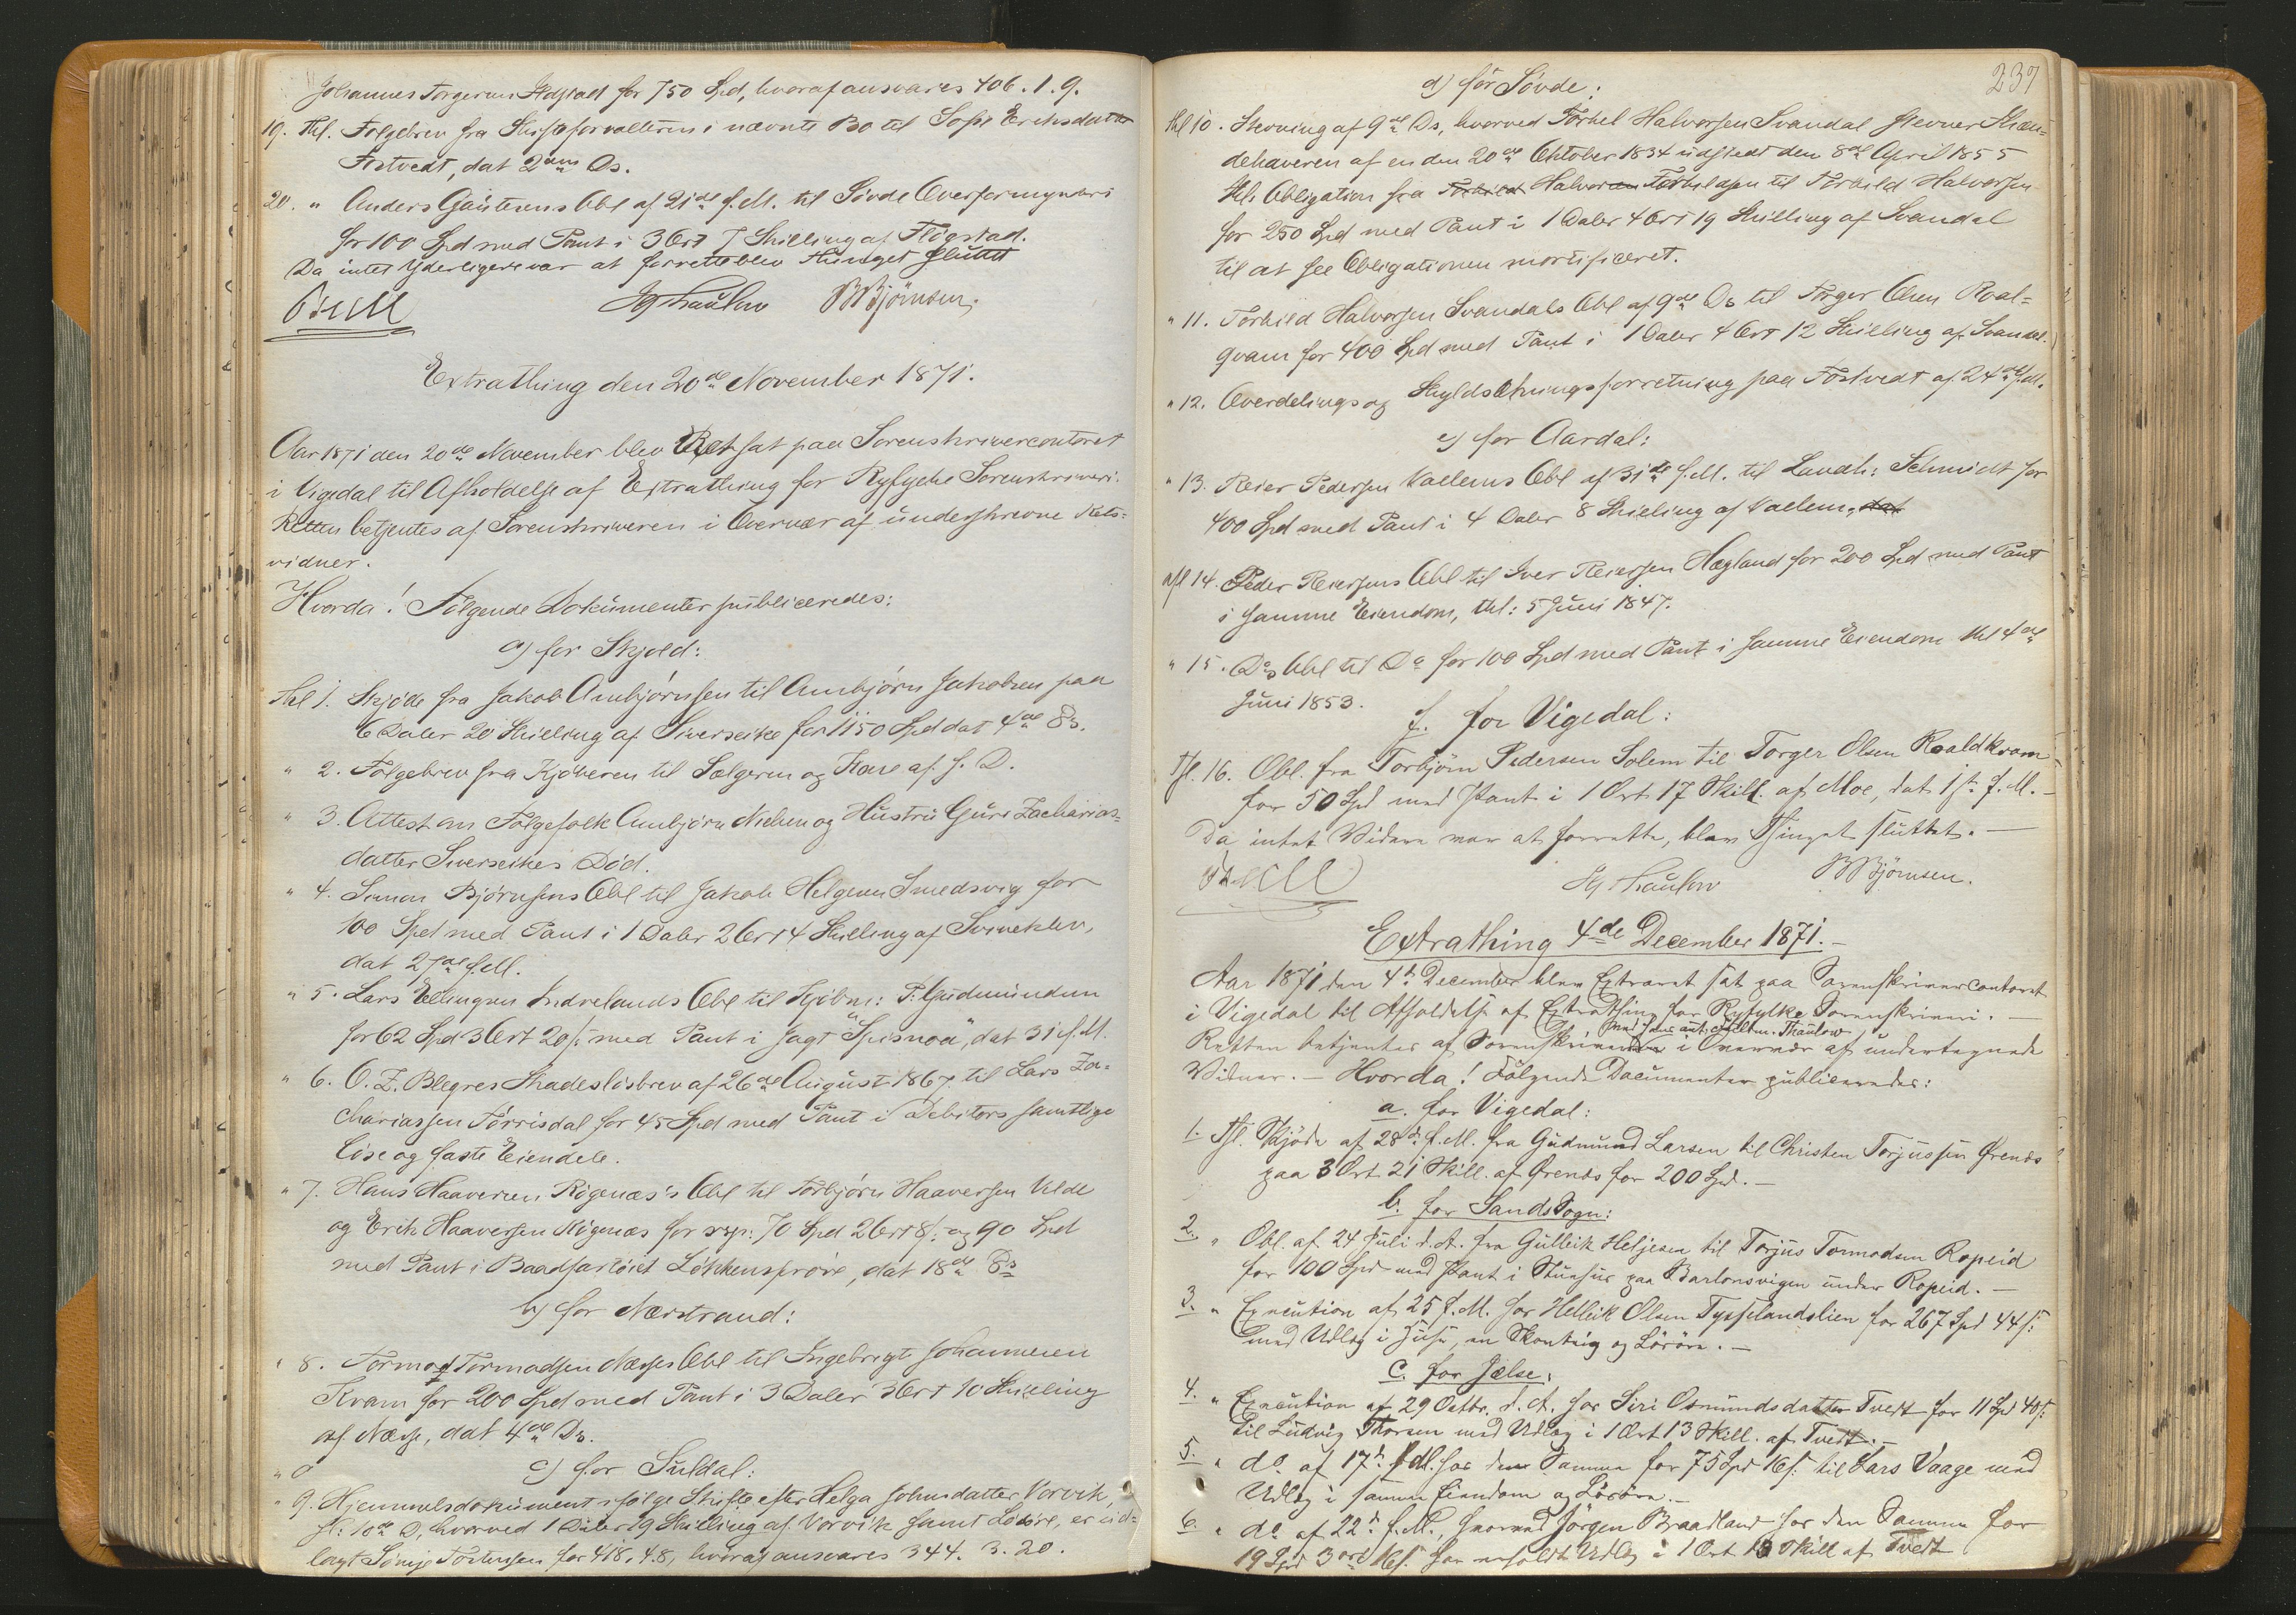 Johannes Torgersen Fistvedt for 750 Spd, hvoraf ansvares 406. 1. 9.
19. thl. Følgebrev fra Skifteforvalteren i nævnte Bo til Sofie Eriksdatter
Fostvedt, dat 2den Ds.
20. " Anders Gautesens Obl af 21de f. M. til Søvde Overformynderi
for 100 Spd med Pant i 3 Ort 7 Skilling af Flogstad.
Da intet Yderligere var at forrette blev Thinget sluttet
Thaulow BBjörnsen.
Extrathing den 20de November 1871.
Aar 1871 den 20de November blev Ret sat paa Sorenskrivercontoret
i Vigedal til Afholdelse af Extrathing for Ryfylke Sorenskriveri.
Retten betjentes af Sorenskriveren i Overvær af underskrevne Rets-
vidner.
Hvorda! Følgende Dokumenter publiceredes:
a) for Skjold:
thl 1. Skjøde fra Jakob Ambjørnsen til Ambjørn Jakobsen paa
6 Daler 20 Skilling af Liverseike for 1150 Spd dat 4de Ds.
" 2. Følgebrev fra Kjøberen til Sælgeren og Kone af s. D.
" 3. Attest om Følgefolk Ambjørn Nielsen og Hustru Guri Zacharias-
datter Liverseikes Død.
" 4. Simon Bjørnsens Obl til Jakob Helgesen Smedsvig for
100 Spd med Pant i 1 Daler 2 Ort 4 Skilling af Svineklev,
dat 27de f. M.
" 5. Lars Ellingsen Indrelands Obl til Kjöbm: P. Gudmundsen
for 62 Spd 3 Ort 20 s: med Pant i Jagt "Spisnoa", dat 31 f. M.
" 6. O. Z. Blegres Skadesløsbrev af 26de August 1867 til Lars Za-
chariassen Tørrisdal for 45 Spd med Pant i Debitors samtlige
løse og faste Eiendele.
" 7. Hans Haaversen Røgenæs's Obl til Torbjørn Haaversen Velde
og Erik Haaversen Røgenæs for resp: 70 Spd 2 Ort 8 s: og 90 Spd
med Pant i Baadfartöiet Lökkensprøve, dat 18de Ds
b) for Nerstrand:
" 8. Tormod Tormodsen Næsses Obl til Ingebrigt Johannesen
Kvam for 200 Spd med Pant i 3 Daler 3 Ort 10 Skilling
af Næsse, dat 4de Ds.
c) for Suldal:
" 9. Hjemmelsdokument ifølge Skifte efter Helga Johnsdatter Vorvik,
sl: 10de D, hvorved 1 Daler 19 Skilling af Vorvik samt Løsøre, er ud-
lagt Sönje Tostensen for 418. 4. 8, hvoraf ansvares 344. 3. 20.
237
d) for Søvde:
thl 10. Stevning af 9de Ds, hvorved Torkel Halvorsen Svandal stevner Ihæn-
dehaveren af en den 20de Oktober 1834 udstedt den 8de April 1855
thl. Obligation fra Torkild Halvorsen Torkelsen til Torkild Halvorsen
for 250 Spd med Pant i 1 Daler 4 Ort 19 Skilling af Svandal
til at see Obligationen mortificeret.
" 11. Torkild Halvorsen Svandals Obl af 9de Ds til Torger Olsen Roal-
qvam for 400 Spd med Pant i 1 Daler 4 Ort 12 Skilling af Svandal.
" 12. Overdelings og Skyldsætningsforretning paa Fostvedt af 24de f. M.
e) for Aardal:
" 13. Reier Pedersen Vallems Obl af 31de f. M. til Landh: Schmidt for
400 Spd med Pant i 4 Daler 8 Skilling af Vallem, dat
afl 14. Peder Reiersens Obl til Iver Reiersen Hægland for 200 Spd med Pant
i samme Eiendom, thl: 5 Juni 1847.
" 15. Ds Obl til Do for 100 Spd med Pant i samme Eiendom thl 4de
Juni 1853.
f. for Vigedal:
Thl. 16. Obl. fra Torbjörn Pedersen Solem til Torger Olsen Roaldkvam
for 50 Spd med Pant i 1 Ort 17 Skill. af Moe, dat 1st f. M. —
Da intet Videre var at forrette, blev Thinget sluttet. —
Thaulow BBjörnsen.
Extrathing 4de December 1871. —
Aar 1871 den 4de December blev Extraret sat paa Sorenskrivercontoret
i Vigedal til Afholdelse af Extrathing for Ryfylke Sorenskriveri. —
Retten betjentes af Sorenskriveren ved hans aut. Fuldm. Thaulow i Overvær af undertegnede
Vidner. — Hvorda! Følgende Documenter publiceredes:
a. for Vigedal:
1. Thl. Skjöde af 28de f. M. fra Gudmund Larsen til Christen Torjussen Ørends
paa 3 Ort 21 Skill. af Ørends for 200 Spd. —
b. for Sands Sogn:
2. " Obl. af 24 Juli d. A. fra Gulleik Heljesen til Torjus Tormodsen Ropeid
for 100 Spd med Pant i Stuehus paa Barlonsvigen under Ropeid. —
3. " Execution af 25 f. M. hos Hellik Olsen Tysselandslien for 267 Spd 44 s:
med Udlæg i Huse, en og Lösöre. —
c. for Jelse:
4. " Execution af 29 Octbr. d. A. hos Siri Osmundsdatter Tvedt for 11 Spd 40 s:
til Ludvig Thorsen med Udlæg i 1 Ort 13 Skill. af Tvedt. —
5. " do af 17de f. M. hos den Samme for 75 Spd 16 s: til Lars Vaage med
Udlæg i samme Eiendom og Lösöre. —
6. " do af 22de f. M., hvorved Jörgen Braadland hos den Samme for
19 Spd 3 ort 16 s. har erholdt Udlæg i 1 Ort 13 Skill af Tvedt